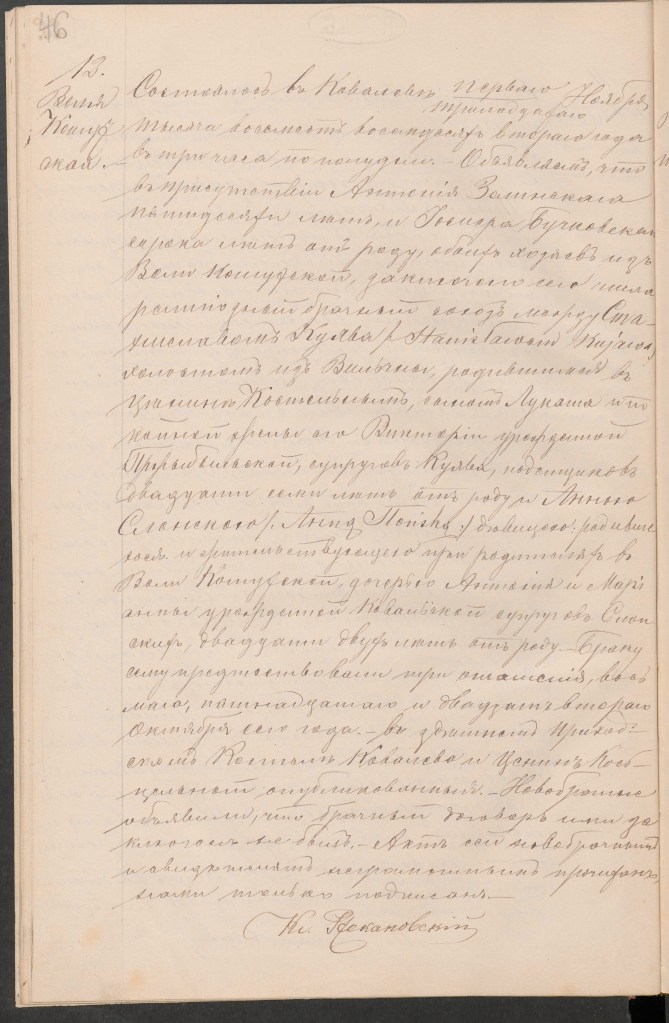 46
13.
Воля
Кошут
ская.
Состоялось въ Ковалевѣ перваго Ноября
тринадцатаго
тысяча восемьсотъ восемдесятъ втораго года
въ три часа по полудни. – Объявляемъ, что
въ присутствіи Антонія Залинскаго
пятидесяти лѣтъ, и
сорока лѣтъ отъ роду, обоихъ изъ
Воли Кошутской, заключенъ сего числа
религіозный брачный союзъ между Ста-
ниславомъ Куява /: Stanisławem Kujawą
холостымъ изъ родившимся въ
Костельнымъ, сыномъ Лукаша и по
койной жены его Викторіи урожденной
супруговъ Куява,
двадцати семи лѣтъ отъ роду и Анною
Слонскою /: Anną Słońską :/ дѣвицею: родившею
ся и жительствующею при родителяхъ въ
Воли Кошутской, дочерью Антонія и Марі
анны урожденной Ковальской супруговъ Слон
скихъ, двадцати двухъ лѣтъ отъ роду. – Браку
сему предшествовали три оглашенія, вось
маго, пятнадцатаго и двадцать втораго
Октября сего года. – въ здѣшнемъ Приход-
скомъ Костелѣ Ковалево и Ценинъ Кост-
цельный опубликованныя. – Новобрачные
объявили, что брачный договоръ ими за
ключенъ не былъ. – Актъ сей новобрачнымъ
и свидѣтелямъ неграмотнымъ прочитанъ,
нами только подписанъ. –
Кс.